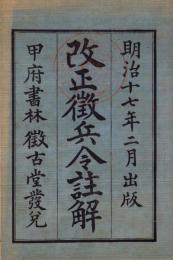 明治十七年二月出版
改正徴兵令註解
甲府書林徴古堂發兌